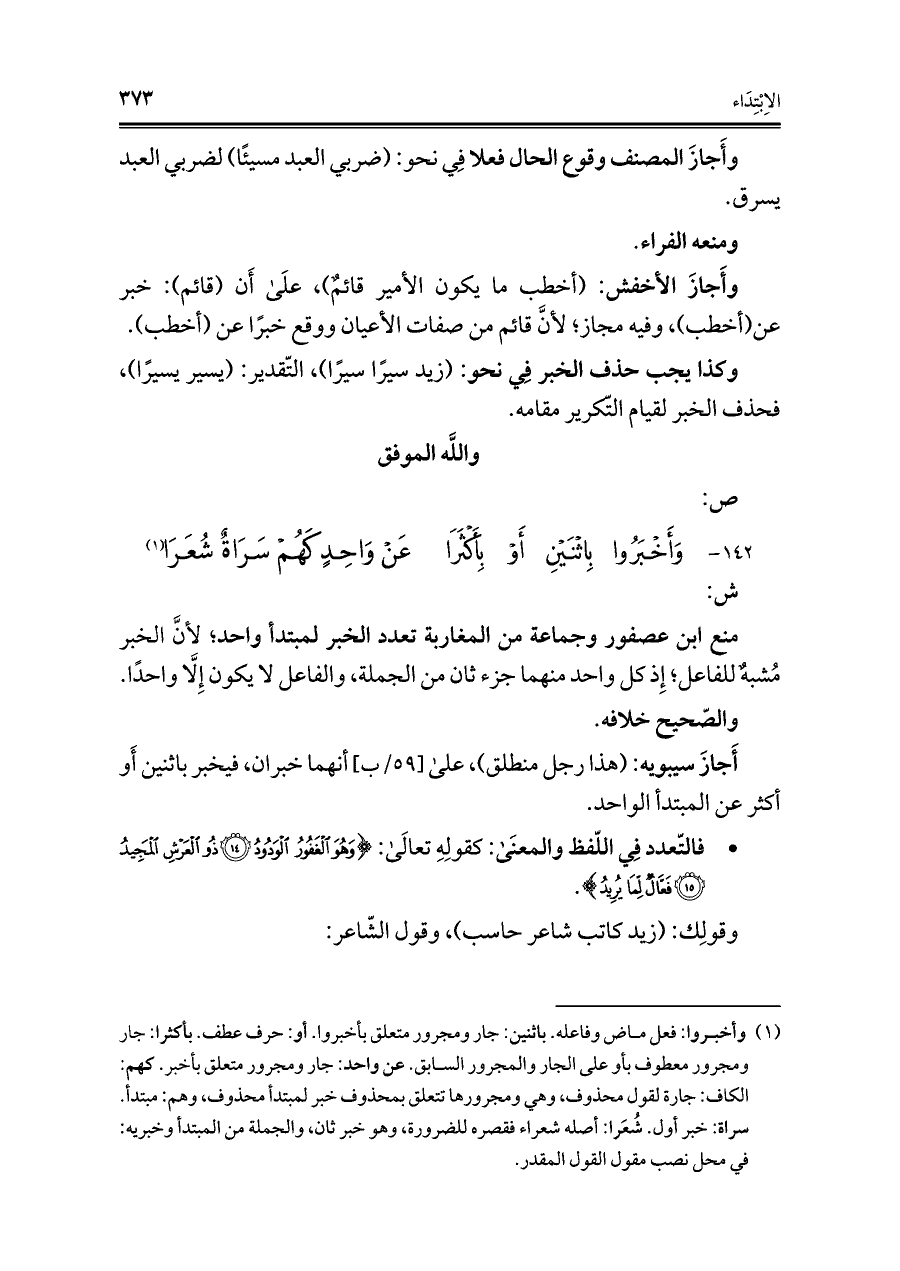 الِابْتِدَاء ٣٧٣
وأَجازَ المصنف وقوع الحال فعلا فِي نحو: (ضربي العبد مسيئًا) لضربي العبد
يسرق.
ومنعه الفراء.
وأَجازَ الأخفش: (أخطب ما يكون الأمير قائمٌ)، علَىٰ أَن (قائم): خبر
عن(أخطب)، وفيه مجاز؛ لأنَّ قائم من صفات الأعيان ووقع خبرًا عن (أخطب).
وكذا يجب حذف الخبر فِي نحو: (زيد سيرًا سيرًا)، التّقدير: (يسير يسيرًا)،
فحذف الخبر لقيام التّكرير مقامه.
واللَّه الموفق
ص:
١٤٢- وَأَخْبَرُوا بِاثْنَيْنِ أَوْ بِأَكْثَرَا عَنْ وَاحِدٍ كَهُمْ سَرَاةٌ شُعَرَا(١)
ش:
منع ابن عصفور وجماعة من المغاربة تعدد الخبر لمبتدأ واحد؛ لأنَّ الخبر
مُشبهٌ للفاعل؛ إِذ كل واحد منهما جزء ثان من الجملة، والفاعل لا يكون إِلَّا واحدًا.
والصّحيح خلافه.
أَجازَ سيبويه: (هذا رجل منطلق)، علىٰ [٥٩/ ب] أنهما خبران، فيخبر باثنين أَو
أكثر عن المبتدأ الواحد.
• فالتّعدد فِي اللّفظ والمعنَىٰ: كقولِهِ تعالَىٰ: ﴿وَهُوَ ٱلْغَفُورُ ٱلْوَدُودُ ١٤ ذُو ٱلْعَرْشِ ٱلْمَجِيدُ
١٥ فَعَّالٌ لِّمَا يُرِيدُ﴾.
وقولِك: (زيد كاتب شاعر حاسب)، وقول الشّاعر:
(١) وأخبروا: فعل ماض وفاعله. باثنين: جار ومجرور متعلق بأخبروا. أو: حرف عطف. بأكثرا: جار
ومجرور معطوف بأو على الجار والمجرور السابق. عن واحد: جار ومجرور متعلق بأخبر. كهم:
الكاف: جارة لقول محذوف، وهي ومجرورها تتعلق بمحذوف خبر لمبتدأ محذوف، وهم: مبتدأ.
سراة: خبر أول. شُعَرا: أصله شعراء فقصره للضرورة، وهو خبر ثان، والجملة من المبتدأ وخبريه:
في محل نصب مقول القول المقدر.